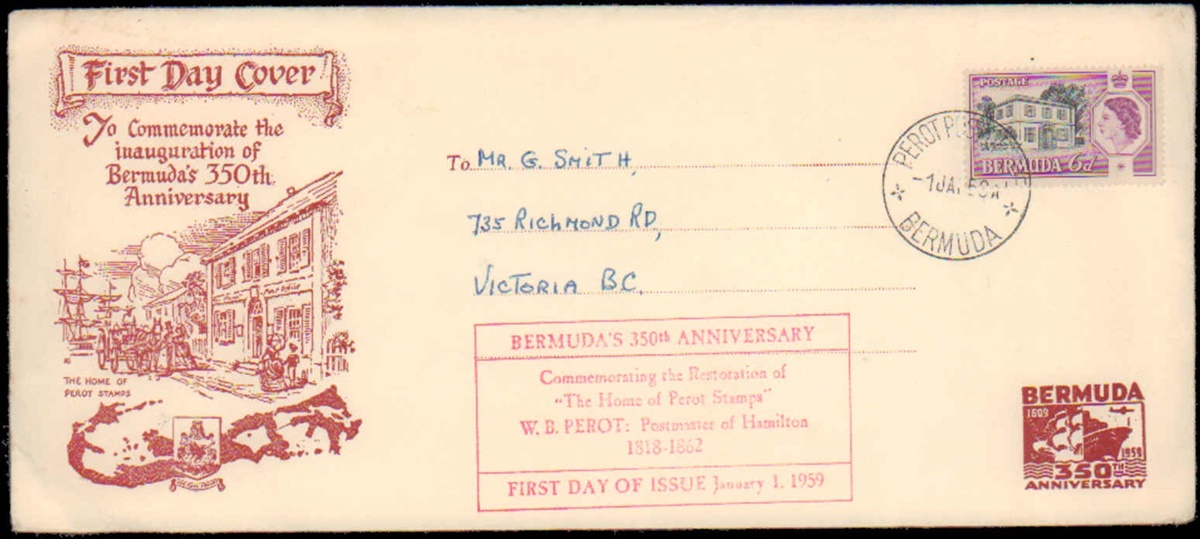 First Day Cover
To Commemorate the
inauguration of
Bermuda's 350th
Anniversary
POST OFFICE
THE HOME OF
PEROT STAMPS
To Mr. G. Smith,
735 Richmond RD,
Victoria B.C.
POSTAGE
BERMUDA 6d
PEROT POST
BERMUDA
BERMUDA'S 350th ANNIVERSARY
Commemorating the Restoration of
"The Home of Perot Stamps"
W. B. PEROT: Postmaster of Hamilton
1818-1862
FIRST DAY OF ISSUE January 1, 1959
BERMUDA
1959
350TH
ANNIVERSARY